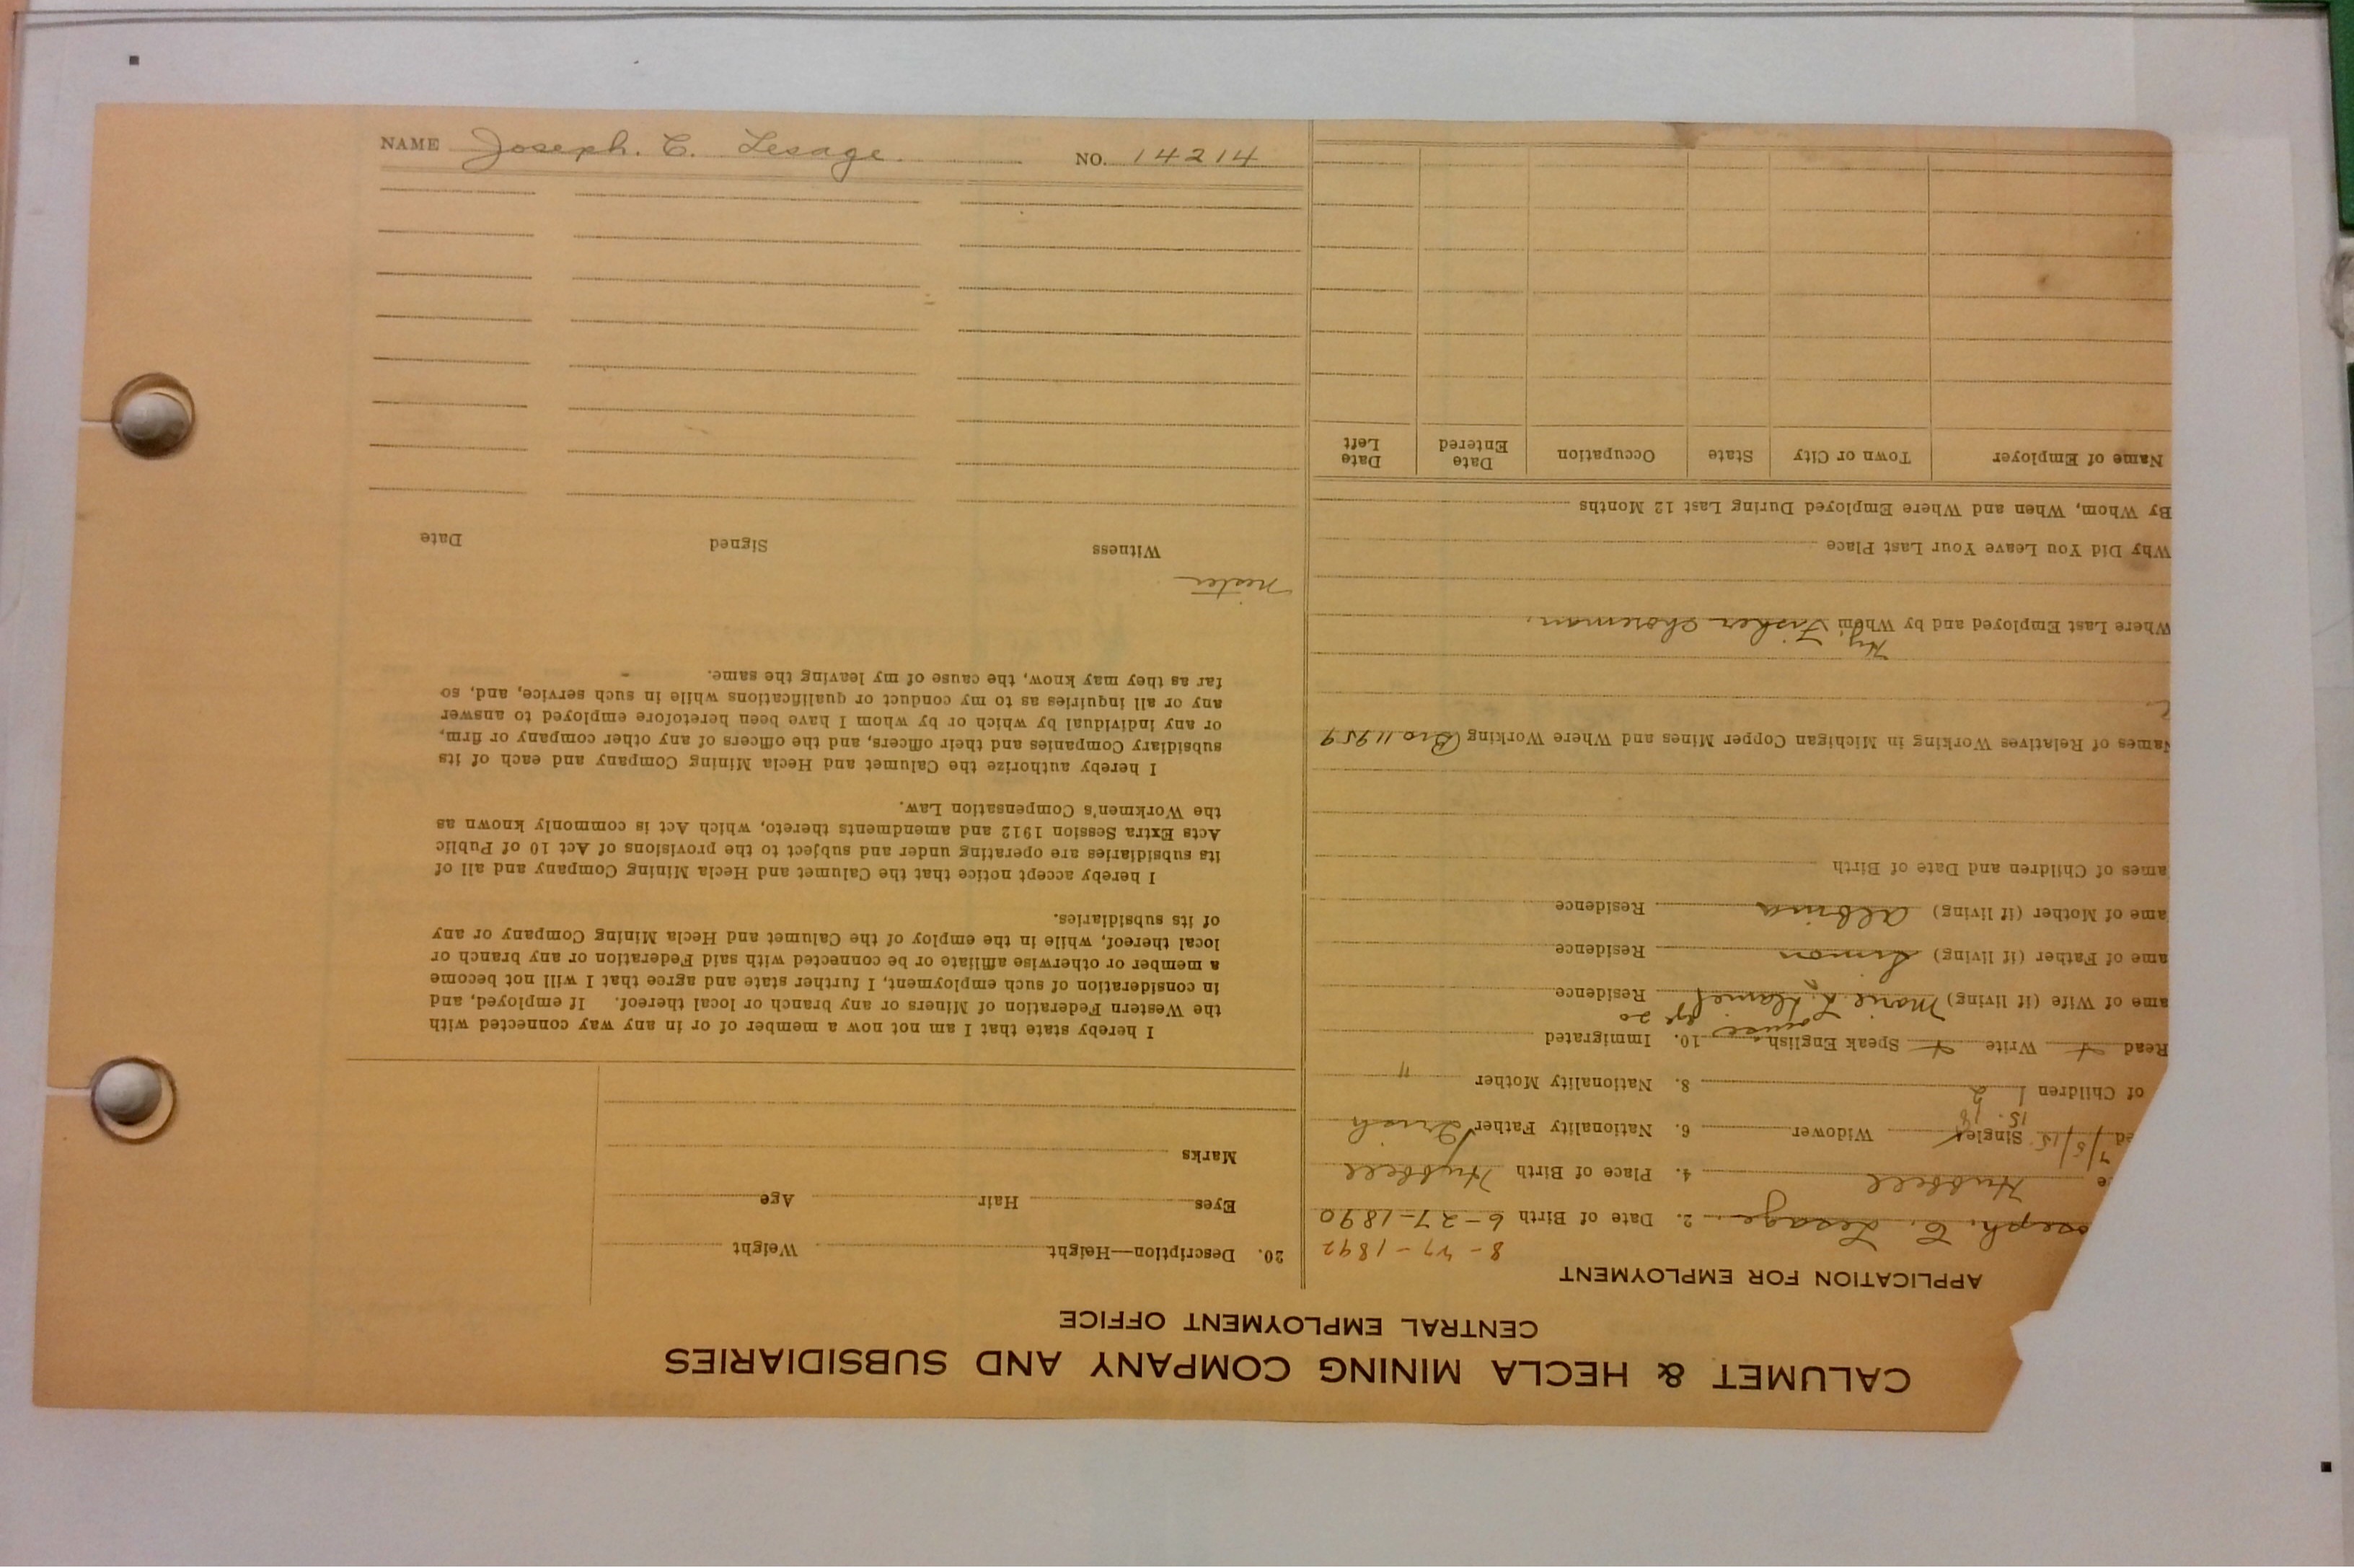 NAME Joseph. C. Lesage. NO. 14214
CALUMET & HECLA MINING COMPANY AND SUBSIDIARIES
CENTRAL EMPLOYMENT OFFICE
APPLICATION FOR EMPLOYMENT
8-27-1892
oseph. C. Lesage. 2. Date of Birth 6-27-1890
e Hubbell 4. Place of Birth Hubbell
ed 7/5/15 Single Widower 6. Nationality Father Irish
15. 18
of Children 1 2 8. Nationality Mother "
Read Write Speak English 10. Immigrated
ouise age 20
ame of Wife (if living) Marie L. Residence
ame of Father (if living) Simon Residence
ame of Mother (if living) Albina Residence
ames of Children and Date of Birth
Names of Relatives Working in Michigan Copper Mines and Where Working Bro 11959
Hy.
Where Last Employed and by Whom Fisher Choreman.
Why Did You Leave Your Last Place
By Whom, When and Where Employed During Last 12 Months
Name of Employer Town or City State Occupation Date Entered Date Left
20. Description—Height Weight
Eyes Hair Age
Marks
I hereby state that I am not now a member of or in any way connected with
the Western Federation of Miners or any branch or local thereof. If employed, and
in consideration of such employment, I further state and agree that I will not become
a member or otherwise affiliate or be connected with said Federation or any branch or
local thereof, while in the employ of the Calumet and Hecla Mining Company or any
of its subsidiaries.
I hereby accept notice that the Calumet and Hecla Mining Company and all of
its subsidiaries are operating under and subject to the provisions of Act 10 of Public
Acts Extra Session 1912 and amendments thereto, which Act is commonly known as
the Workmen's Compensation Law.
I hereby authorize the Calumet and Hecla Mining Company and each of its
subsidiary Companies and their officers, and the officers of any other company or firm,
or any individual by which or by whom I have been heretofore employed to answer
any or all inquiries as to my conduct or qualifications while in such service, and, so
far as they may know, the cause of my leaving the same.
Witness Signed Date